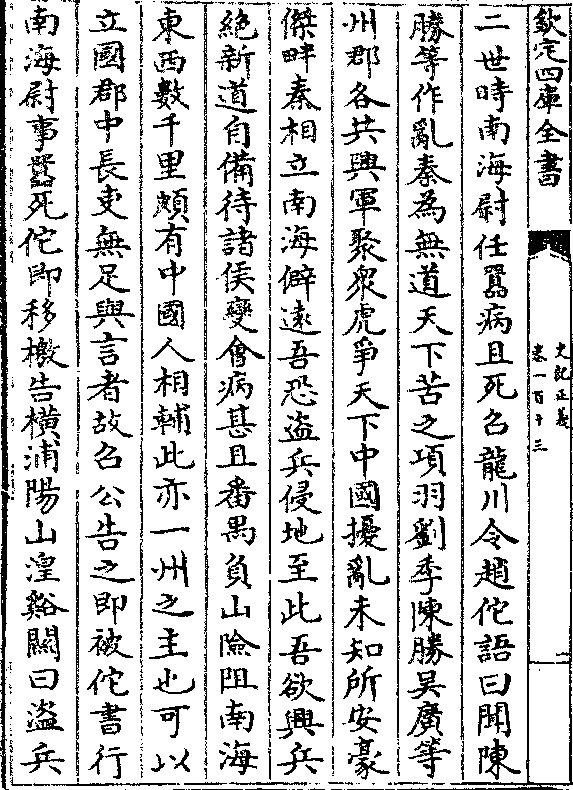 欽定四庫全書
史記正義
卷一百十三
二
二世時南海尉任囂病且死召龍川令趙佗語曰聞陳
勝等作亂秦為無道天下苦之項羽劉季陳勝吳廣等
州郡各共興軍聚衆虎爭天下中國擾亂未知所安豪
傑畔秦相立南海僻逺吾恐盗兵侵地至此吾欲興兵
絶新道自備待諸侯變㑹病甚且番禺負山險阻南海
東西數千里頗有中國人相輔此亦一州之主也可以
立國郡中長吏無足與言者故召公告之即被佗書行
南海尉事囂死佗即移檄告横浦陽山湟谿關曰盗兵